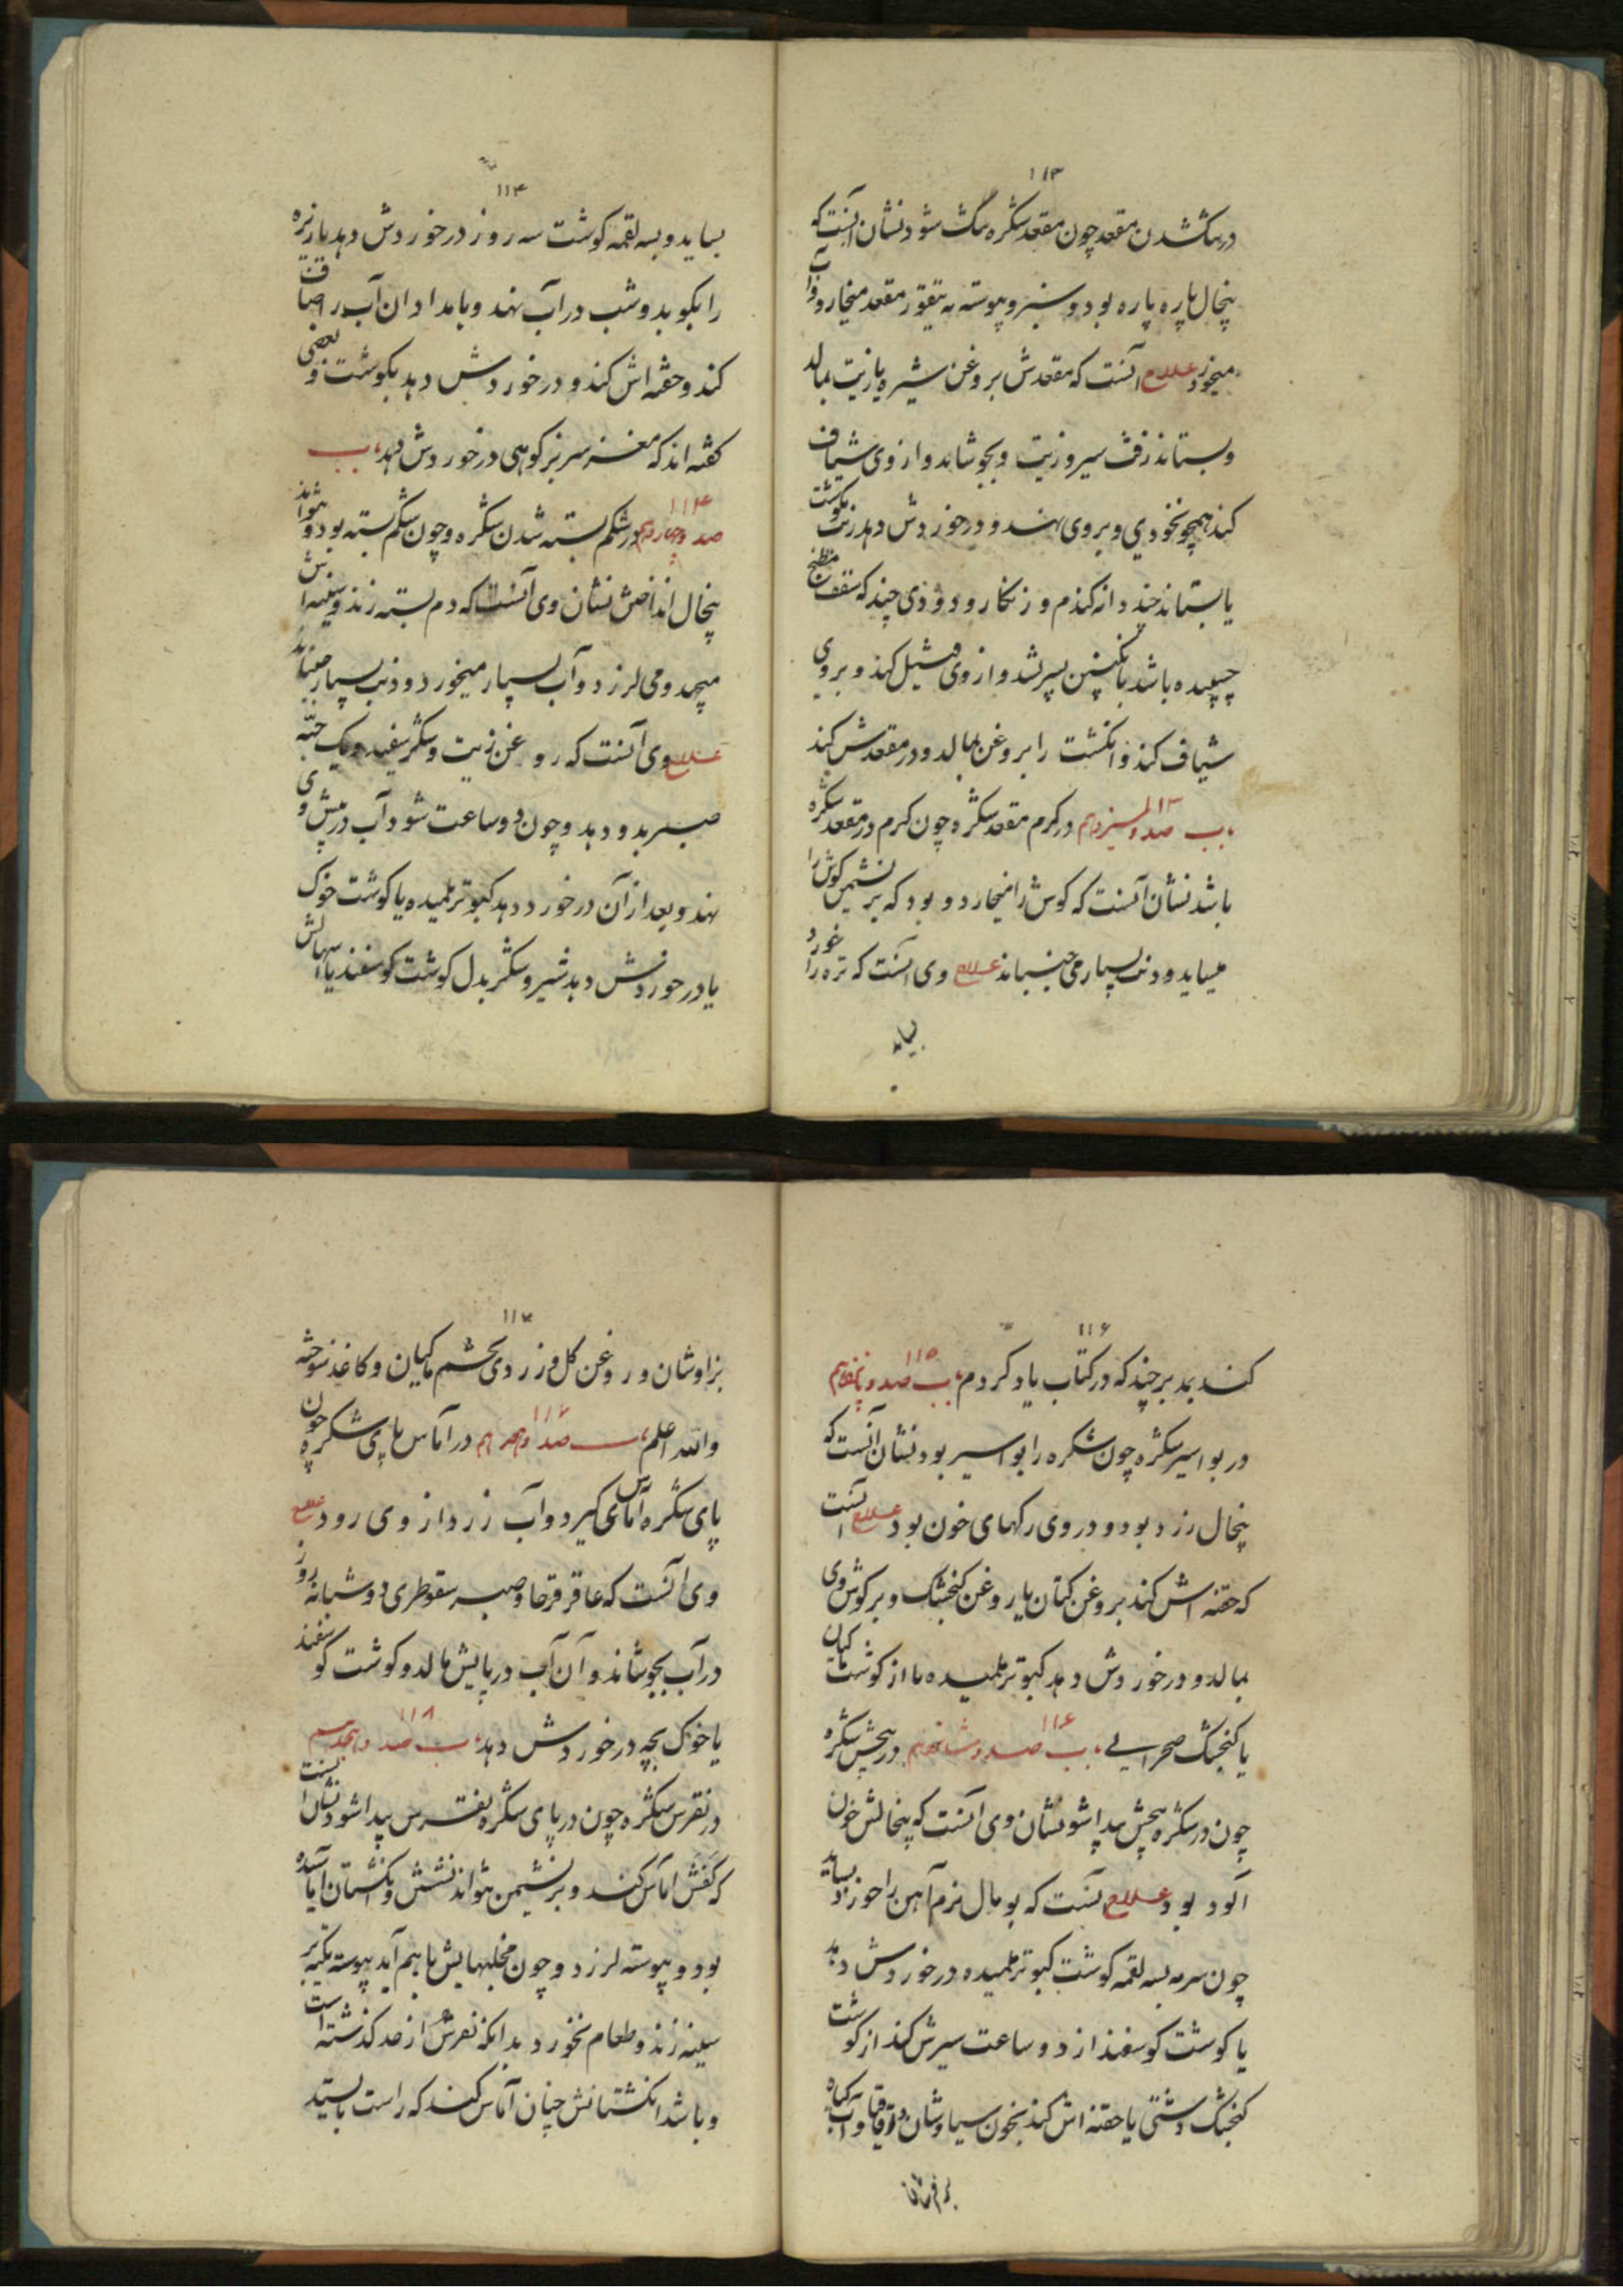 ۱۱۳
در تنگ شدن مقعد چون مقعد شکره تنگ شود نشان آنست که
پنجال پاره پاره بود و سبز و پیوسته به تیقور مقعد میخارد و آب
میخورد علاج آنست که مقعدش بروغن شیره یا زیت بمالد
و بستاند زفت سیر و زیت و بجوشاند و از وی شیاف
کند همچو نخودی و بروی نهند و در خوردش دهد زیت بگوشت
یا بستاند چند دانه کندم و زنکار و دودی چند که سقف مطبخ
چسپیده باشد بانکبین بسرشد و از وی فتیل کند و بروی
شیاف کند و انکشت را بروغن بمالد و در مقعدش کند
باب صد و سیزدهم ۱۱۳ در کرم مقعد شکره چون کرم در مقعد شکره
باشد نشان آنست که کوش را میخارد و بود که بر نشیمن کوش را
میساید و دنب بسیار می جنباند علاج وی آنست که تره را خورد
بساید
۱۱۴
بساید و بسه لقمه کوشت سه روز در خوردش دهد یا تره
را بکوبد و شب در آب نهد و بامدادان آب را صاف
کند و حقنه اش کند و در خوردش دهد بکوشت و بعضی
کفته اند که مغز سر بز کوهی در خوردش دهد باب
صد و چهاردهم ۱۱۴ در شکم بسته شدن شکره و چون شکم بسته بود و نتواند
پنجال انداختن نشان وی آنست که دم بسته زند و سینه اش
میجهد و می لرزد و آب بسیار میخورد و دنب بسیار میجنباند
علاج وی آنست که روغن زیت و شکر سفید و یک حبّه
صبر بدو دهد و چون دو ساعت شود آب در پیش وی
نهد و بعد از آن در خورد دهد کبوتر تلمیده یا کوشت خوک
یا در خوردش دهد شیر و شکر بدل کوشت کوسفند
۱۱۶
کند بمد بر چند که در کتاب یاد کردم باب صد و پانزدهم ۱۱۵
در بواسیر شکره چون شکره را بواسیر بود نشان آنست که
پنجال زرد بود و در وی رکهای خون بود علاج آنست
که حقنه اش کند بروغن کتان یا روغن کنجشک و بر کوش وی
بمالد و در خوردش دهد کبوتر تلمیده یا از کوشت
یا کنجشک صحرایی باب صد و شانزدهم ۱۱۶ در پیچش شکره
چون در شکره پیچش پیدا شود نشان وی آنست که پنجالش خون
آلود بود علاج آنست که بومال نرم آهن را خورد بساید
چون سرمه بسه لقمه کوشت کبوتر تلمیده در خوردش دهد
یا کوشت کوسفند از دو ساعت سیرش کند از کوشت
کنجشک دشتی یا حقنه اش کند بخون سیاوشان و اقاقیا و آب
۱۱۷
بزاوشان و روغن کل و زردی تخم ماکیان و کاغذ سوخته
والله اعلم باب صد و هفدهم در آماس پای شکره چون
پای شکره آماس کیرد و آب زرد از وی رود علاج
وی آنست که عاقرقرحا و صبر سقوطری دو شبانه روز
در آب بجوشاند و آن آب در پایش مالد و کوشت کوسفند
یا خوک بچه در خوردش دهد باب صد و هجدهم ۱۱۸
در نقرس شکره چون در پای شکره نقرس پیدا شود نشان آنست
که کفش آماس کند و بر نشیمن نتواند نشستن و انکشتان آماسیده
بود و پیوسته لرزد و چون مخلبهایش با هم آید پیوسته تکیه بر
سینه زند و طعام نخورد بدانکه نقرس از حد کذشته است
و باشد انکشتانش چنان آماس کند که راست بایستد